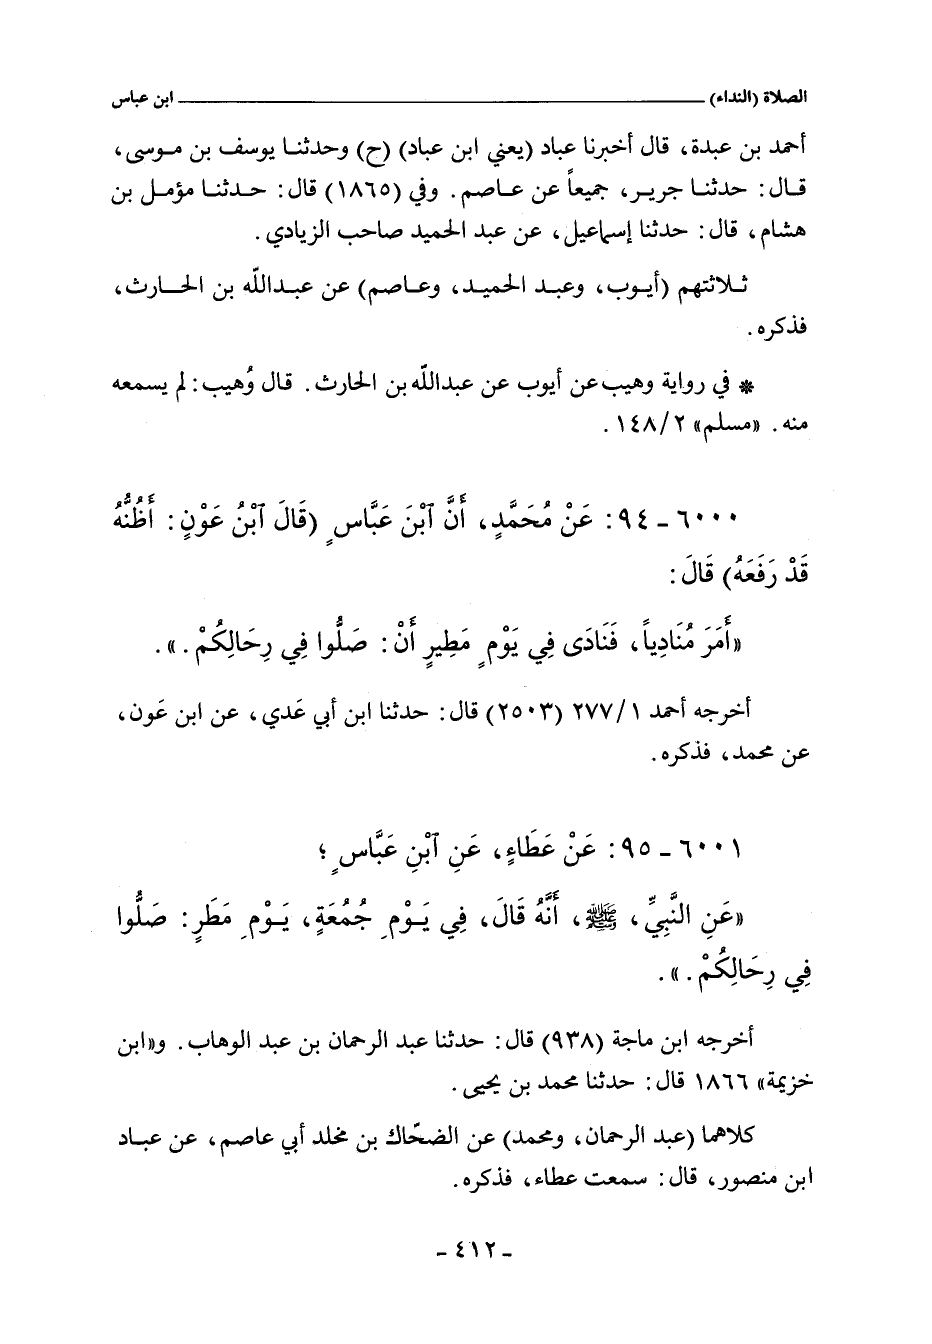 الصلاة (النداء) ابن عباس
أحمد بن عبدة، قال أخبرنا عباد (يعني ابن عباد) (ح) وحدثنا يوسف بن موسى،
قال: حدثنا جرير، جميعاً عن عاصم. وفي (١٨٦٥) قال: حدثنا مؤمل بن
هشام، قال: حدثنا إسماعيل، عن عبد الحميد صاحب الزيادي.
ثلاثتهم (أيوب، وعبد الحميد، وعاصم) عن عبدالله بن الحارث،
فذكره.
* في رواية وهيب عن أيوب عن عبدالله بن الحارث. قال وُهيب: لم يسمعه
منه. «مسلم» ١٤٨/٢.
٦٠٠٠ ـ ٩٤: عَنْ مُحَمَّدٍ، أَنَّ ٱبْنَ عَبَّاسٍ (قَالَ ٱبْنُ عَوْنٍ: أَظُنُّهُ
قَدْ رَفَعَهُ) قَالَ:
«أَمَرَ مُنَادِياً، فَنَادَى فِي يَوْمٍ مَطِيرٍ أَنْ: صَلُّوا فِي رِحَالِكُمْ.».
أخرجه أحمد ٢٧٧/١ (٢٥٠٣) قال: حدثنا ابن أبي عَدي، عن ابن عَون،
عن محمد، فذكره.
٦٠٠١ ـ ٩٥: عَنْ عَطَاءٍ، عَنِ ٱبْنِ عَبَّاسٍ؛
«عَنِ النَّبِيِّ، ﷺ، أَنَّهُ قَالَ، فِي يَوْمِ جُمُعَةٍ، يَوْمِ مَطَرٍ: صَلُّوا
فِي رِحَالِكُمْ.».
أخرجه ابن ماجة (٩٣٨) قال: حدثنا عبد الرحمان بن عبد الوهاب. و«ابن
خزيمة» ١٨٦٦ قال: حدثنا محمد بن يحيى.
كلاهما (عبد الرحمان، ومحمد) عن الضحّاك بن مخلد أبي عاصم، عن عباد
ابن منصور، قال: سمعت عطاء، فذكره.
ـ ٤١٢ ـ